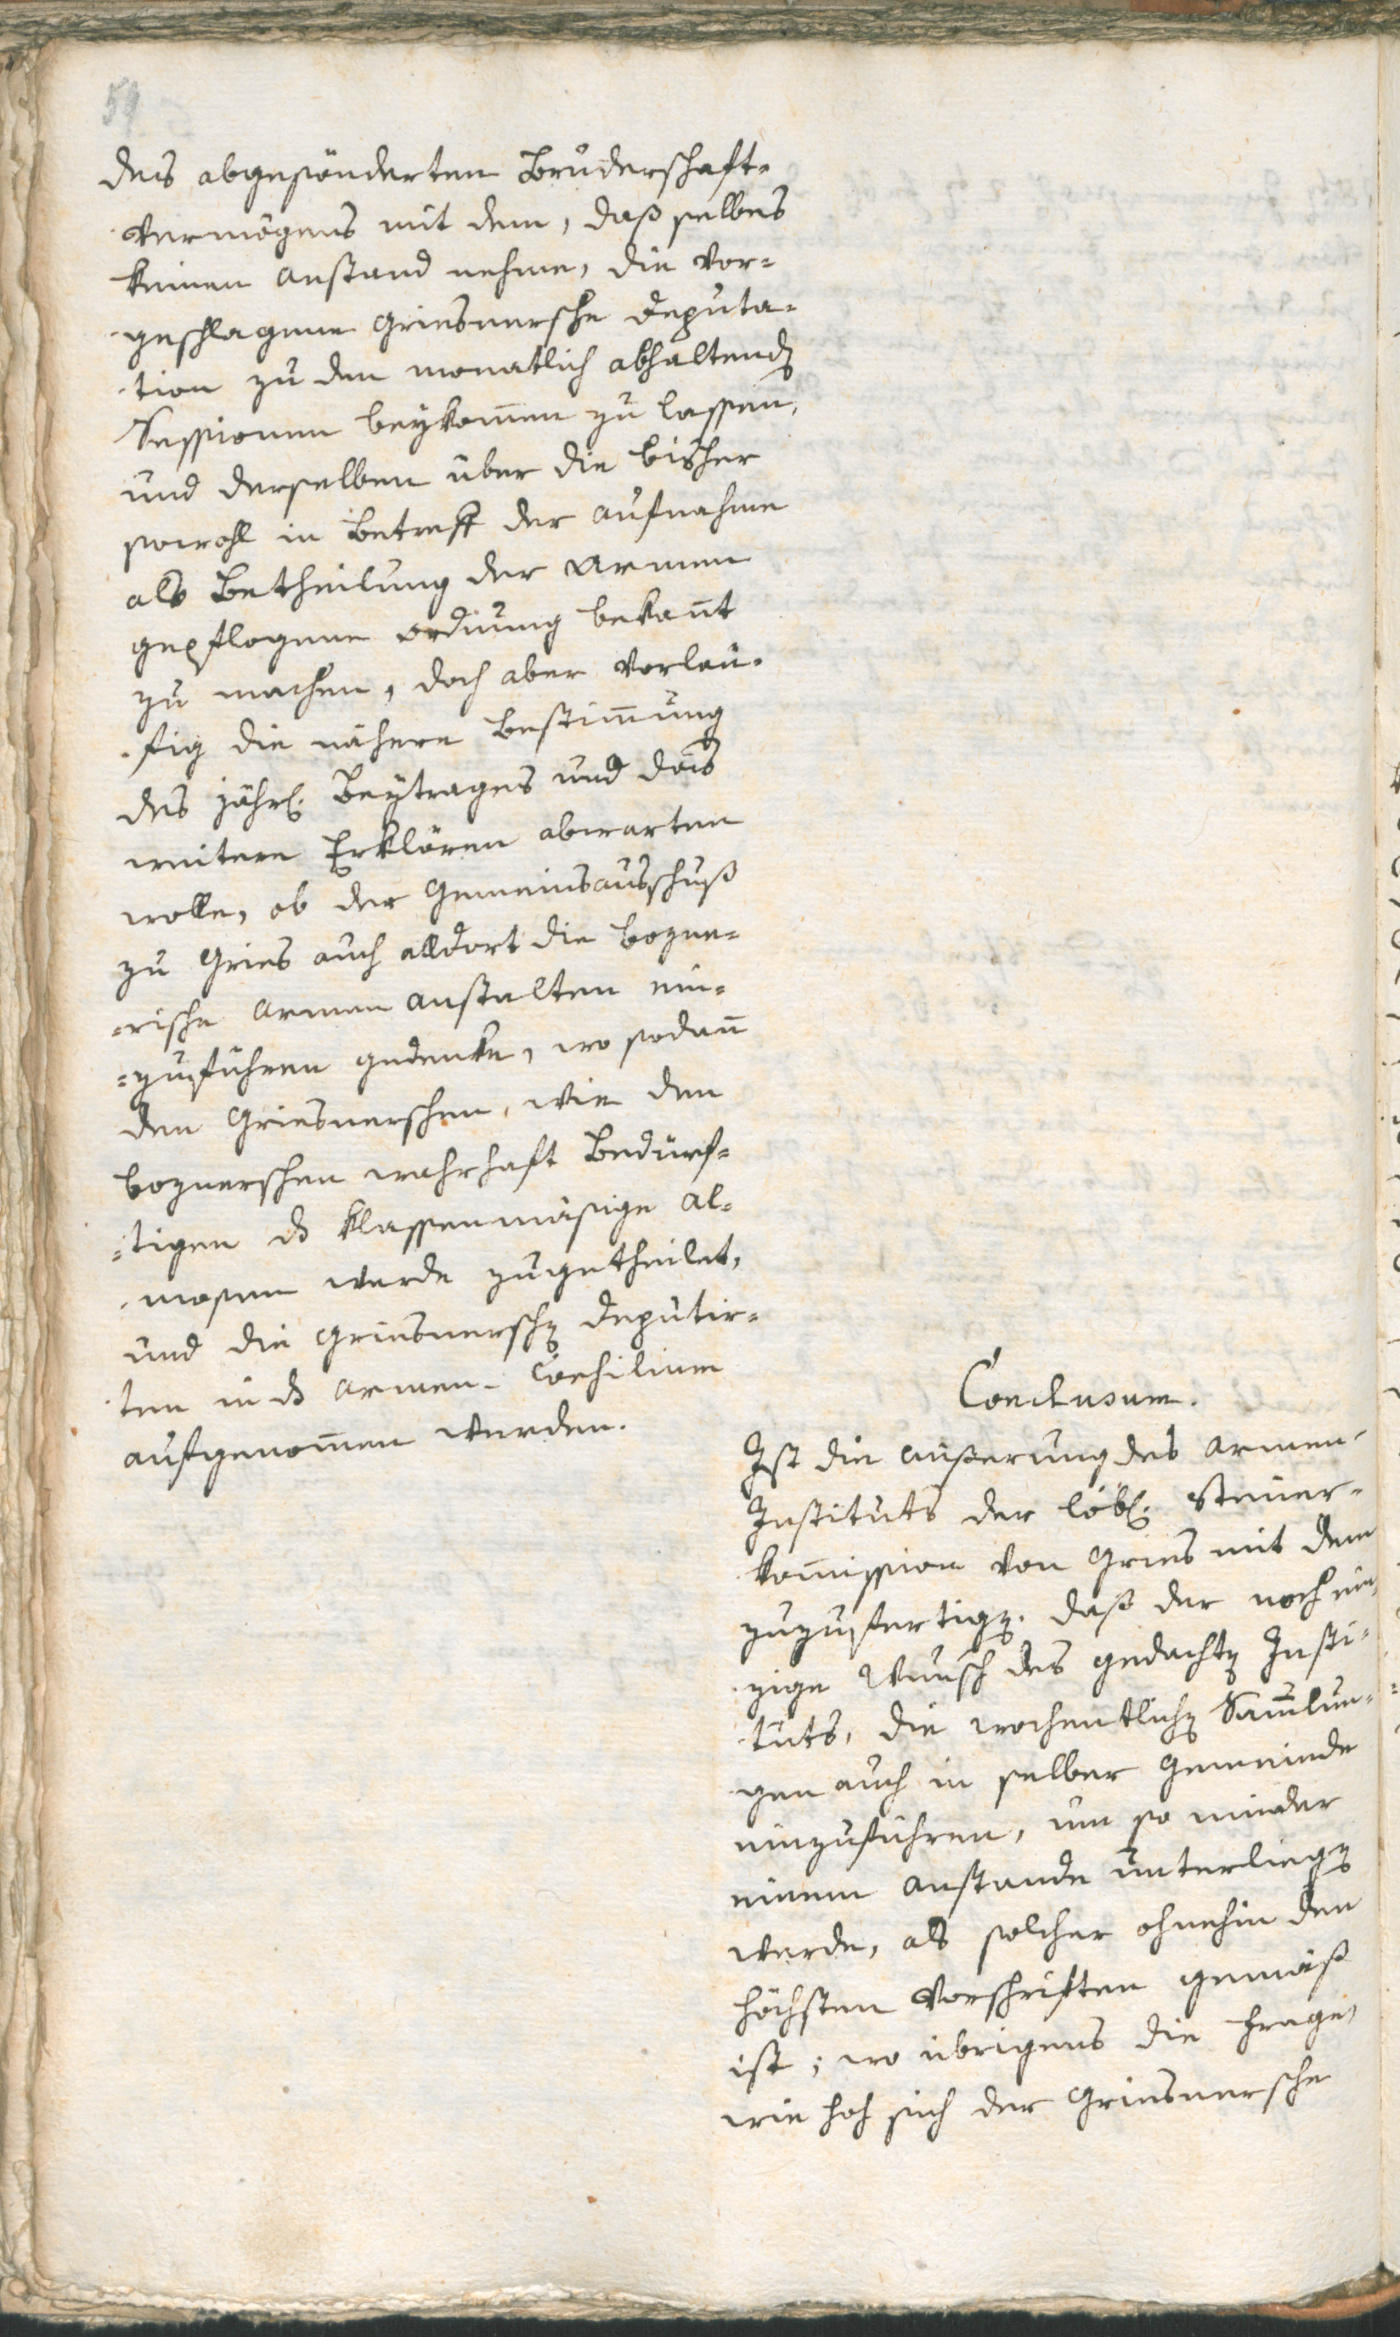 59
des abgesönderten Bruderschaft-
vermögens mit dem, daß selbes
keinen anstand nehme, die vor-
geschlagene Griesnersche deputa-
tion zu den monatlich abhaltend
Sessionen beykom̄en zu lassen,
und derselben über die bisher
sowohl in Betreff der aufnahme
als Betheilung der armen
gepflogene ordnung bekan̄t
zu machen, doch aber vorläu-
fig die nähere bestim̄ung
des jährl. Beytrages und das
weitere Erklären abwarten
wolle, ob der Gemeinsausschuß
zu Gries auch alldort die bozne-
-rische armen anstalten ein-
=zuführen gedenke, wo sodan̄
den Griesnerschen, wie den
boznerschen wahrhaft Bedürf-
=tigen d klassenmäsige al-
mosen werde zugetheilet,
und die Griesnersch deputir-
ten in d armen- Consilium
aufgenom̄en werden.
Conclusum.
Ist die äußerung des armen-
Instituts der löbl. Steuer-
kom̄ission von Gries mit dem
zuzufertig. daß der noch ein-
zige Wunsch des gedacht Insti-
tuts, die wochentlich Sam̄lun-
gen auch in selber Gemeinde
einzuführen, um so minder
einem anstande unterlieg
werde, als solcher ohnehin den
höchsten Vorschriften gemäß
ist; wo übrigens die Frage,
wie hoch sich der Griesnersche